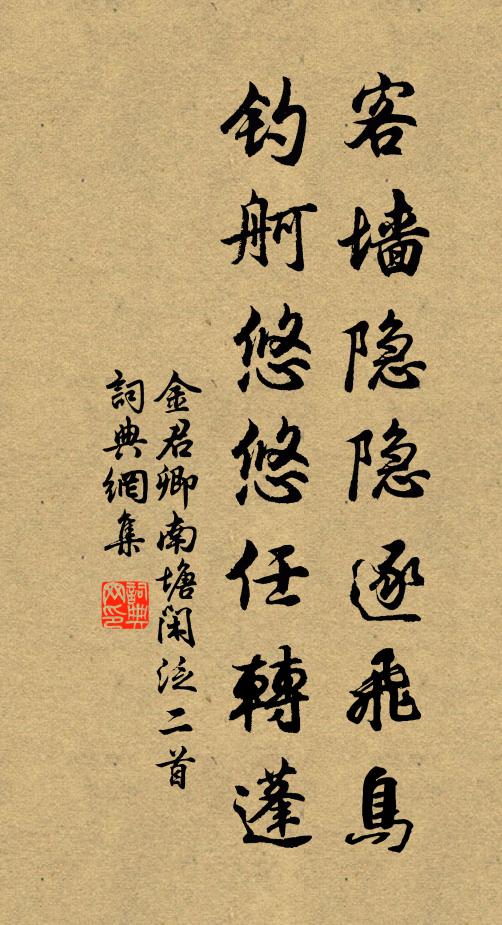 客墙隐隐逐飛鳥
钓舸悠悠任轉蓬
金君卿南塘闲泛二首
詞典網集
詞典網印